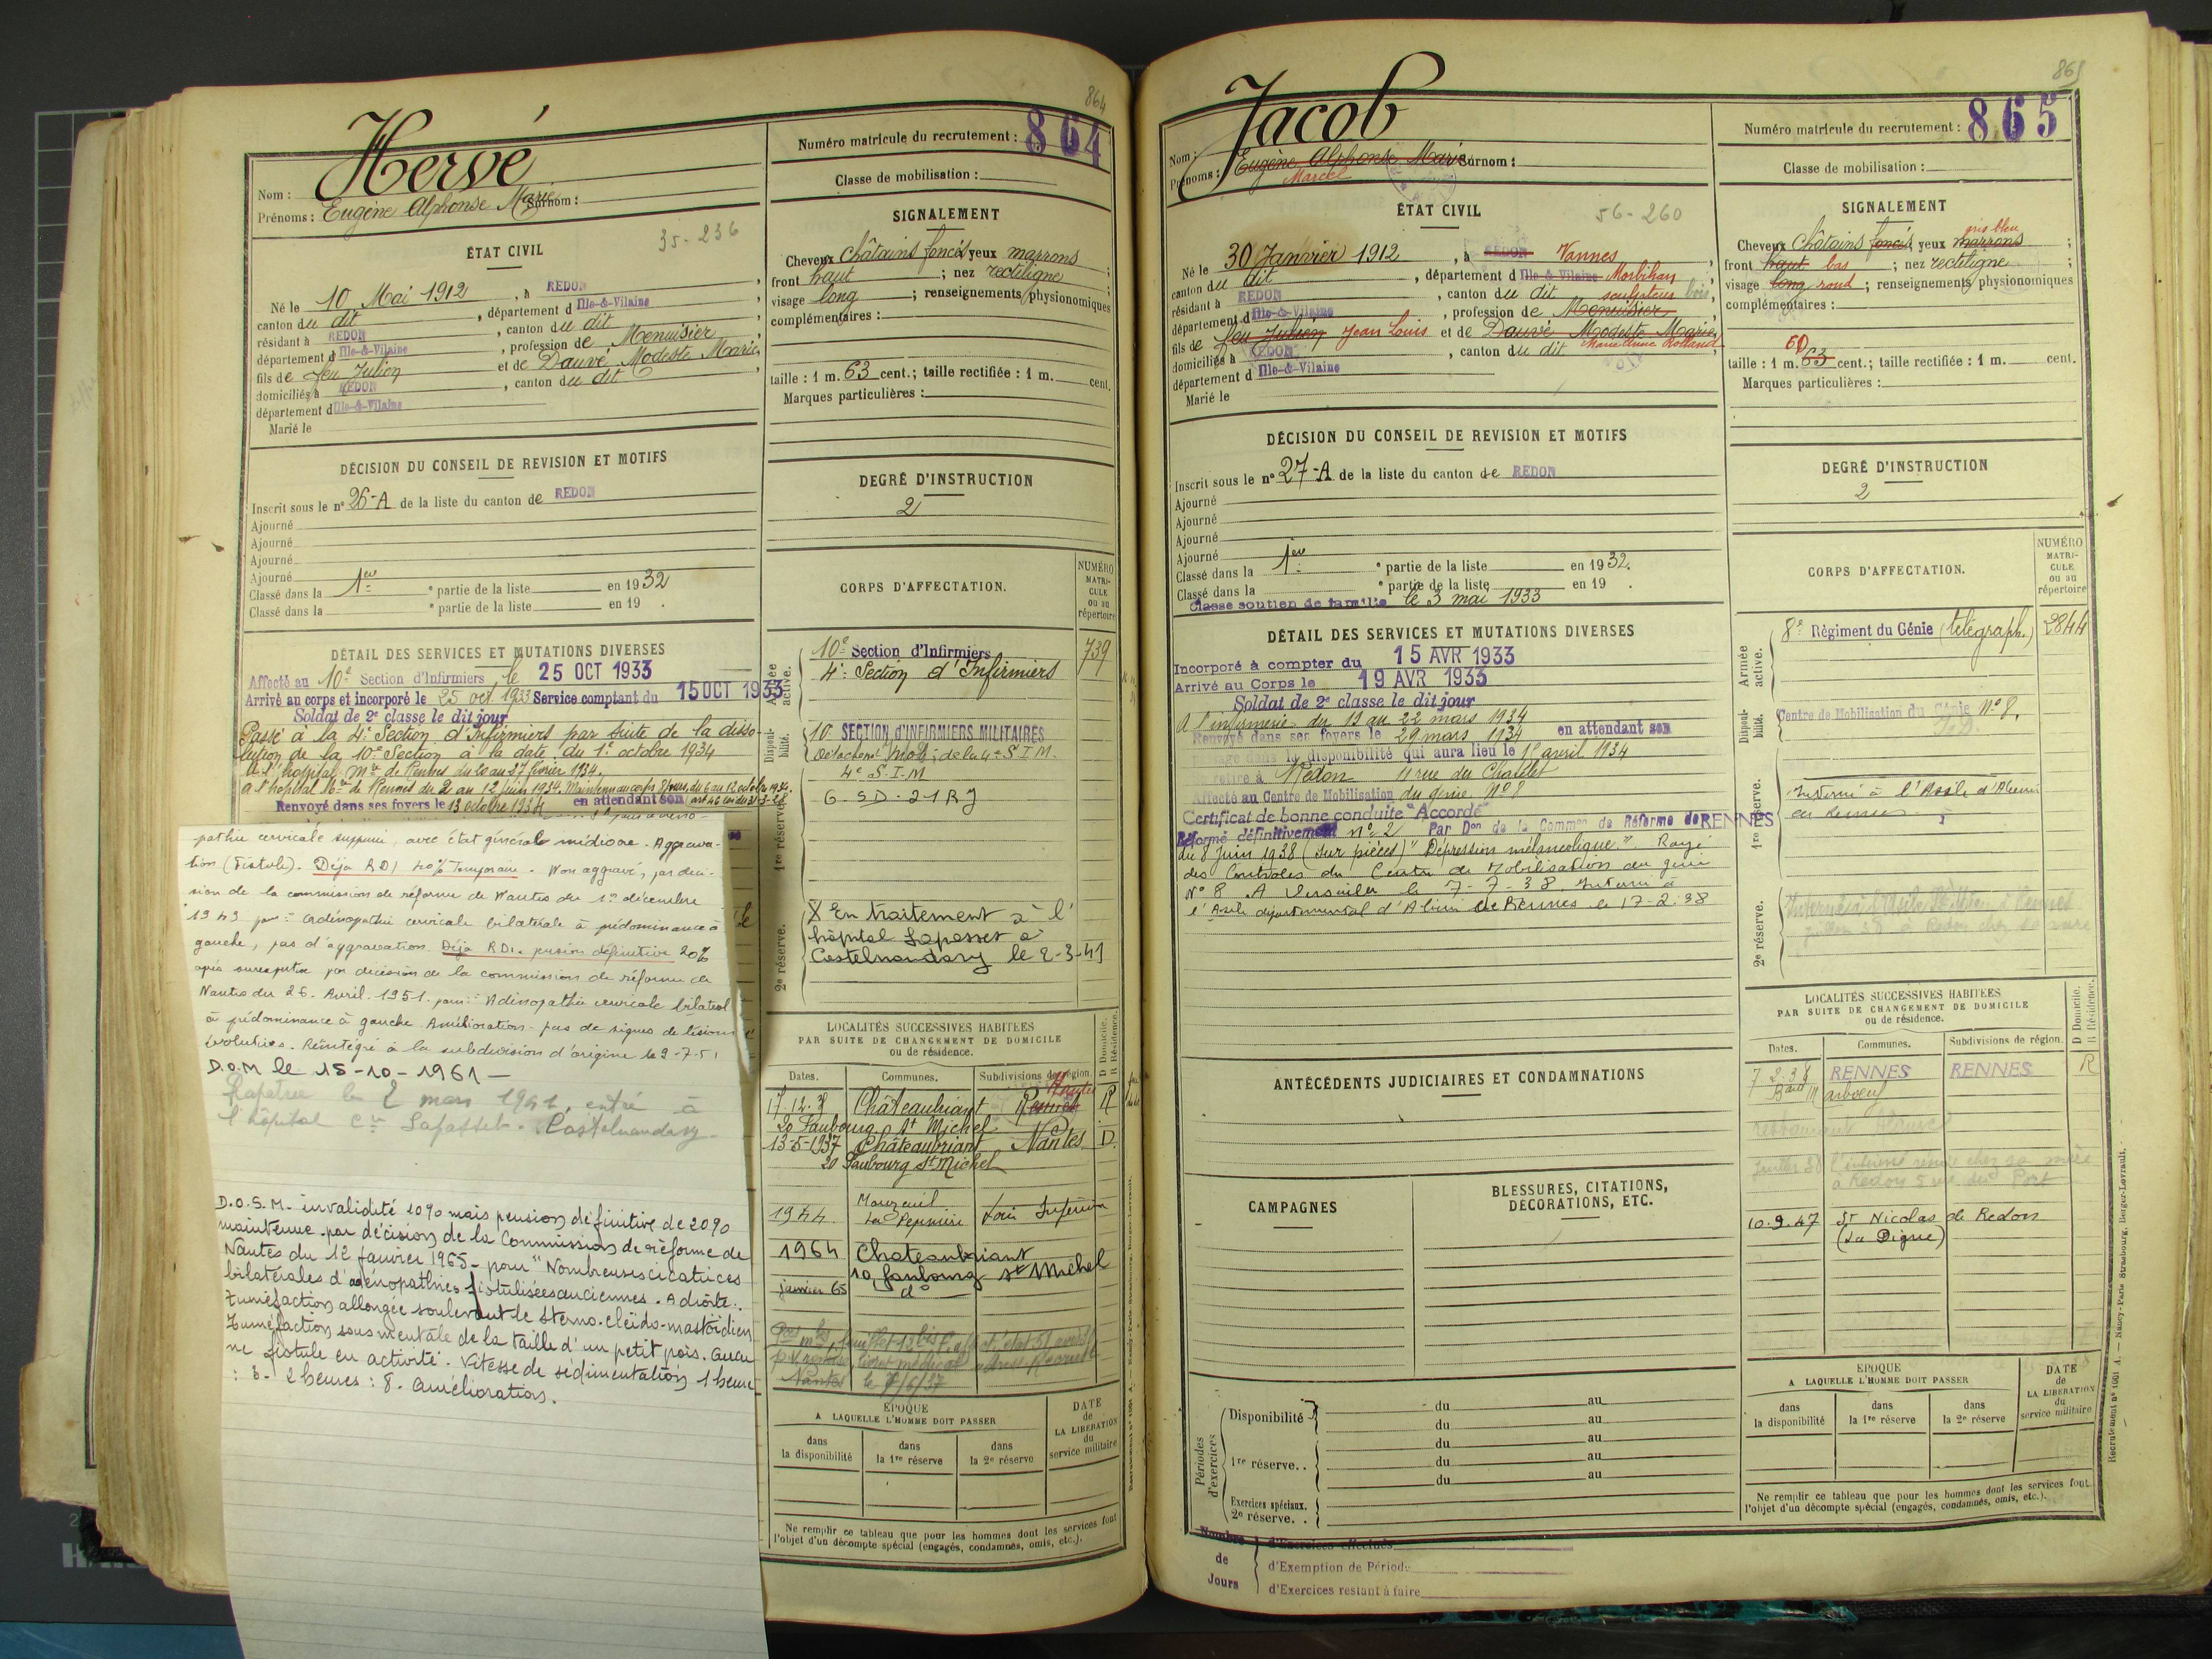 864
Hervé
Nom :
Prénoms : Eugène Alphonse Marie Surnom :
Numéro matricule du recrutement : 864
Classe de mobilisation :
ÉTAT CIVIL
35-236
Né le 10 Mai 1912, à REDON,
canton du dit, département d Ille-&-Vilaine
résidant à REDON, canton du dit
département d Ille-&-Vilaine, profession de Menuisier
fils de feu Julien et de Dauvé Modeste Marie,
domiciliés à REDON, canton du dit,
département d Ille-&-Vilaine
Marié le
SIGNALEMENT
Cheveux châtains foncés yeux marrons ;
front haut ; nez rectiligne ;
visage long ; renseignements physionomiques
complémentaires :
taille : 1 m. 63 cent. ; taille rectifiée : 1 m. cent.
Marques particulières :
DÉCISION DU CONSEIL DE REVISION ET MOTIFS
Inscrit sous le nº 26-A de la liste du canton de REDON
Ajourné
Ajourné
Ajourné
Ajourné
Classé dans la 1ère partie de la liste en 1932
Classé dans la e partie de la liste en 19 .
DEGRÉ D'INSTRUCTION
2
DÉTAIL DES SERVICES ET MUTATIONS DIVERSES
Affecté au 10e Section d'Infirmiers, le 25 OCT 1933
Arrivé au corps et incorporé le 25 oct. 1933 Service comptant du 15 OCT 1933
Soldat de 2e classe le dit jour
Passé à la 4e Section d'Infirmiers par suite de la disso-
lution de la 10e Section à la date du 1e octobre 1934
A l'hôpital Mre de Rennes du 20 au 27 février 1934.
A l'hôpital Mre de Rennes du 2 au 12 juin 1934. Maintenu au corps 7 jours, du 6 au 12 octobre 1934.
Renvoyé dans ses foyers le 13 octobre 1934 en attendant son (art 46 loi du 31-3-28
pathie cervicale suppurée, avec état général médiocre. Aggrava-
tion (Fistule). Déjà RD1 40% Temporaire. Non aggravé, par déci-
sion de la commission de réforme de Nantes du 1er décembre
1943 pour : adénopathie cervicale bilatérale à prédominance à
gauche, pas d'aggravation. Déjà RD1. pension définitive 20%
après surexpertise par décision de la commission de réforme de
Nantes du 26. Avril. 1951. pour : Adénopathie cervicale bilatéral
à prédominance à gauche. Amélioration - pas de signes de lésions
évolutives. Réintégré à la subdivision d'origine le 9-7-51
D.O.M le 15-10-1961 -
Rapatrié le 2 mars 1941, entré à
l'hôpital Lapasset. Castelnaudary
D.O.S.M. invalidité 10% mais pension définitive de 20%
maintenue par décision de la Commission de réforme de
Nantes du 12 janvier 1965 - pour "Nombreuses cicatrices
bilatérales d'adénopathies fistulisées anciennes. A droite :
tuméfaction allongée soulevant le Sterno-cléido-mastoïdien
Tuméfaction sous mentale de la taille d'un petit pois. Aucu
ne fistule en activité. Vitesse de sédimentation 1 heure
: 3 - 2 heures : 8. Amélioration.
CORPS D'AFFECTATION.
NUMÉRO MATRI-CULE ou au répertoire
Armée active.
10e Section d'Infirmiers 739
4e Section d'Infirmiers
Disponibilité.
10 SECTION D'INFIRMIERS MILITAIRES
Détachemt Mob; de la 4e S.I.M.
4e S.I.M
1re réserve.
6 - SD - 21 RJ
2e réserve.
X En traitement à l'
hôpital Lapasset à
Castelnaudary le 2-3-41
LOCALITÉS SUCCESSIVES HABITÉES
PAR SUITE DE CHANGEMENT DE DOMICILE
ou de résidence.
D Domicile. R Résidence.
Dates. Communes. Subdivisions de région.
17.12.35 Châteaubriant Rennes Nantes R
20 Faubourg St Michel
13-5-1937 Châteaubriant Nantes D.
20 Faubourg St Michel
1944. Mouzeuil Loire Inférieure
La Pépinière
1964 Chateaubriant
10, faubourg St Michel
janvier 65 do
Nantes le 7/6/37
ÉPOQUE
A LAQUELLE L'HOMME DOIT PASSER
dans la disponibilité dans la 1re réserve dans la 2e réserve
DATE de LA LIBÉRATION du service militaire
Ne remplir ce tableau que pour les hommes dont les services font
l'objet d'un décompte spécial (engagés, condamnés, omis, etc.).
865
Jacob
Nom :
Prénoms : Eugène Alphonse Marie Surnom :
Marcel
Numéro matricule du recrutement : 865
Classe de mobilisation :
ÉTAT CIVIL
56-260
Né le 30 Janvier 1912, à REDON Vannes
canton du dit, département d Ille-&-Vilaine Morbihan
résidant à REDON, canton du dit sculpteur bois,
département d Ille-&-Vilaine, profession de Menuisier
fils de feu Julien Jean Louis et de Dauvé Modeste Marie,
Marie Anne Rolland
domiciliés à REDON, canton du dit
département d Ille-&-Vilaine
Marié le
SIGNALEMENT
gris bleu
Cheveux châtains foncés yeux marrons ;
front haut bas ; nez rectiligne ;
visage long rond ; renseignements physionomiques
complémentaires :
60
taille : 1 m. 63 cent. ; taille rectifiée : 1 m. cent.
Marques particulières :
DÉCISION DU CONSEIL DE REVISION ET MOTIFS
Inscrit sous le nº 27-A de la liste du canton de REDON
Ajourné
Ajourné
Ajourné
Ajourné
Classé dans la 1ère partie de la liste en 1932.
Classé dans la e partie de la liste en 19 .
Classé soutien de famille le 3 mai 1933
DEGRÉ D'INSTRUCTION
2
DÉTAIL DES SERVICES ET MUTATIONS DIVERSES
Incorporé à compter du 15 AVR 1933
Arrivé au Corps le 19 AVR 1933
Soldat de 2e classe le dit jour
A l'infirmerie du 19 au 22 mars 1934
Renvoyé dans ses foyers le 29 mars 1934 en attendant son
passage dans la disponibilité qui aura lieu le 15 avril 1934
Se retire à Redon 11 rue du Chatelet
Affecté au Centre de Mobilisation du génie Nº 8
Certificat de bonne conduite "Accordé"
Réformé définitivement nº 2 Par Don de la Common de Réforme de RENNES
du 8 juin 1938 (sur pièces) "Dépression mélancolique". Rayé
des Contrôles du Centre de Mobilisation du génie
Nº 8 A Versailles le 7-7-38. Interné à
l'Asile départemental d'Aliénés de Rennes le 17-2-38
CORPS D'AFFECTATION.
NUMÉRO MATRI-CULE ou au répertoire
Armée active.
8e Régiment du Génie (télégraph.) 2844
Disponibilité.
Centre de Mobilisation du Génie Nº 8.
1re réserve.
Interné à l'Asile d'Aliénés
de Rennes
2e réserve.
LOCALITÉS SUCCESSIVES HABITÉES
PAR SUITE DE CHANGEMENT DE DOMICILE
ou de résidence.
D Domicile. R Résidence.
Dates. Communes. Subdivisions de région.
7 2.38 RENNES RENNES R
Juillet 38 l'intéressé réside chez sa mère
à Redon 5 rue du Port
10.9.47 St Nicolas de Redon
(La Digue)
ANTÉCÉDENTS JUDICIAIRES ET CONDAMNATIONS
CAMPAGNES
BLESSURES, CITATIONS,
DÉCORATIONS, ETC.
Périodes d'exercices
Disponibilité du au
du au
1re réserve.. du au
du au
du au
Exercices spéciaux.
2e réserve. .
Nombre de Jours
d'Exercices effectués
d'Exemption de Période
d'Exercices restant à faire
ÉPOQUE
A LAQUELLE L'HOMME DOIT PASSER
dans la disponibilité dans la 1re réserve dans la 2e réserve
DATE de LA LIBÉRATION du service militaire
Ne remplir ce tableau que pour les hommes dont les services font
l'objet d'un décompte spécial (engagés, condamnés, omis, etc.).
Recrutement nº 1001 A. — Nancy-Paris-Strasbourg, Berger-Levrault.